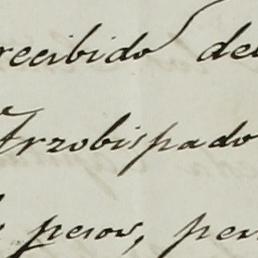 recibido del
Arzobispado
pesos, per